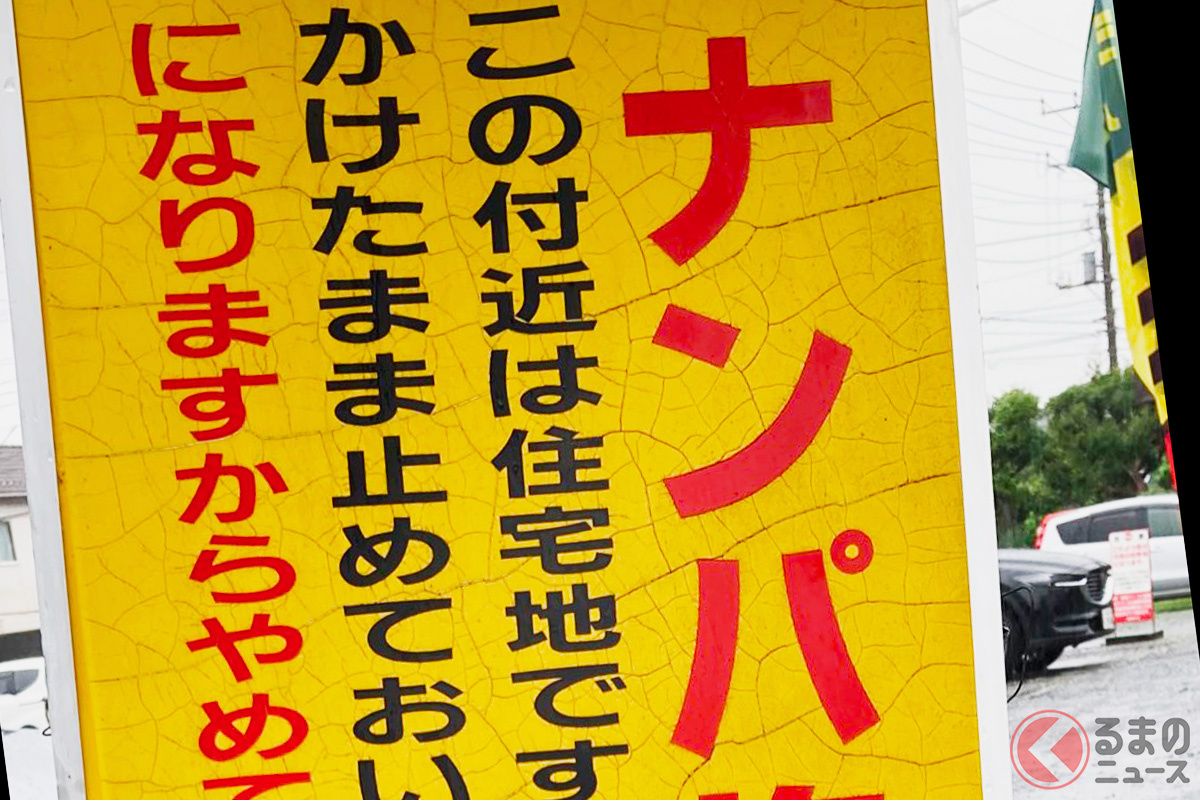 ナンパ
この付近は住宅地です
かけたまま止めておい
になりますからやめて
くるまのニュース